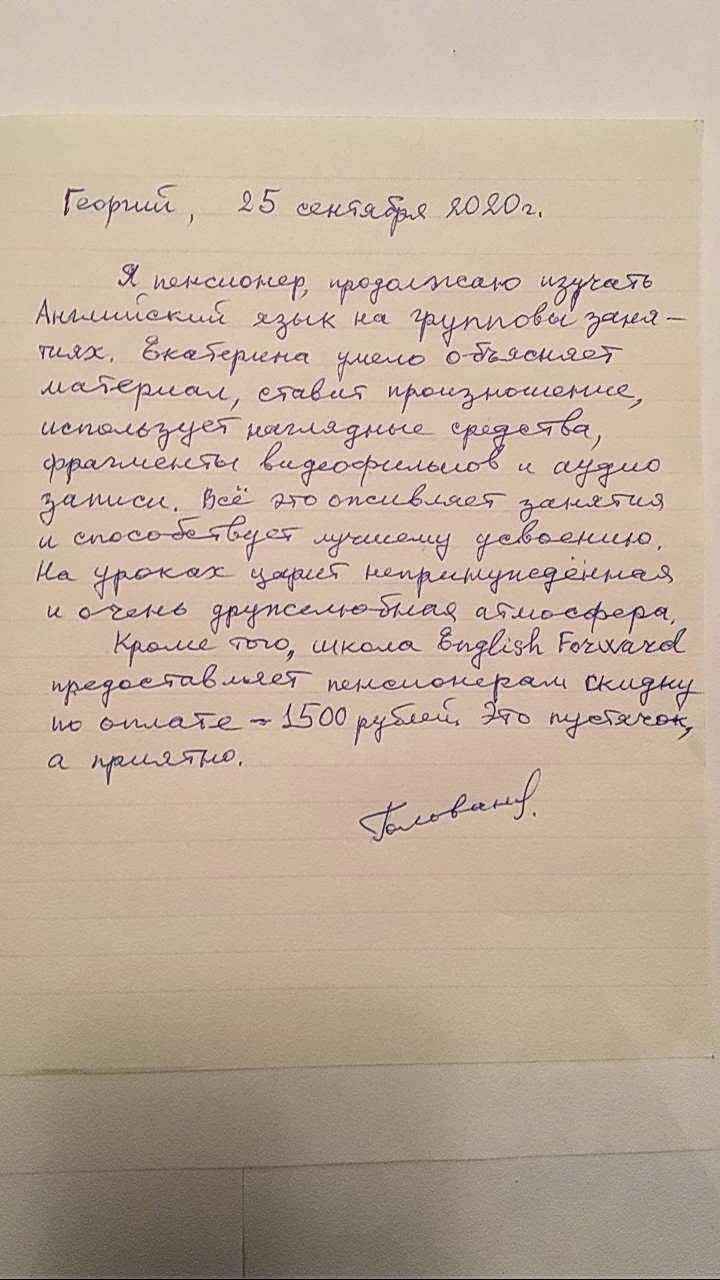 Георгий, 25 сентября 2020г.
Я пенсионер, продолжаю изучать
Английский язык на групповы заня-
тиях. Екатерина умело объясняет
материал, ставит произношение,
использует наглядные средства,
фрагменты видеофильмов и аудио
записи. Всё это оживляет занятия
и способствует лучшему усвоению.
На уроках царит непринуждённая
и очень дружелюбная атмосфера.
Кроме того, школа English Forward
предоставляет пенсионерам скидку
по оплате - 1500 рублей. Это пустячок,
а приятно.